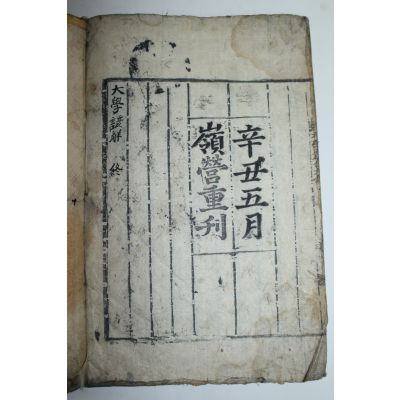 辛丑五月
嶺營重刊
大學諺解 終